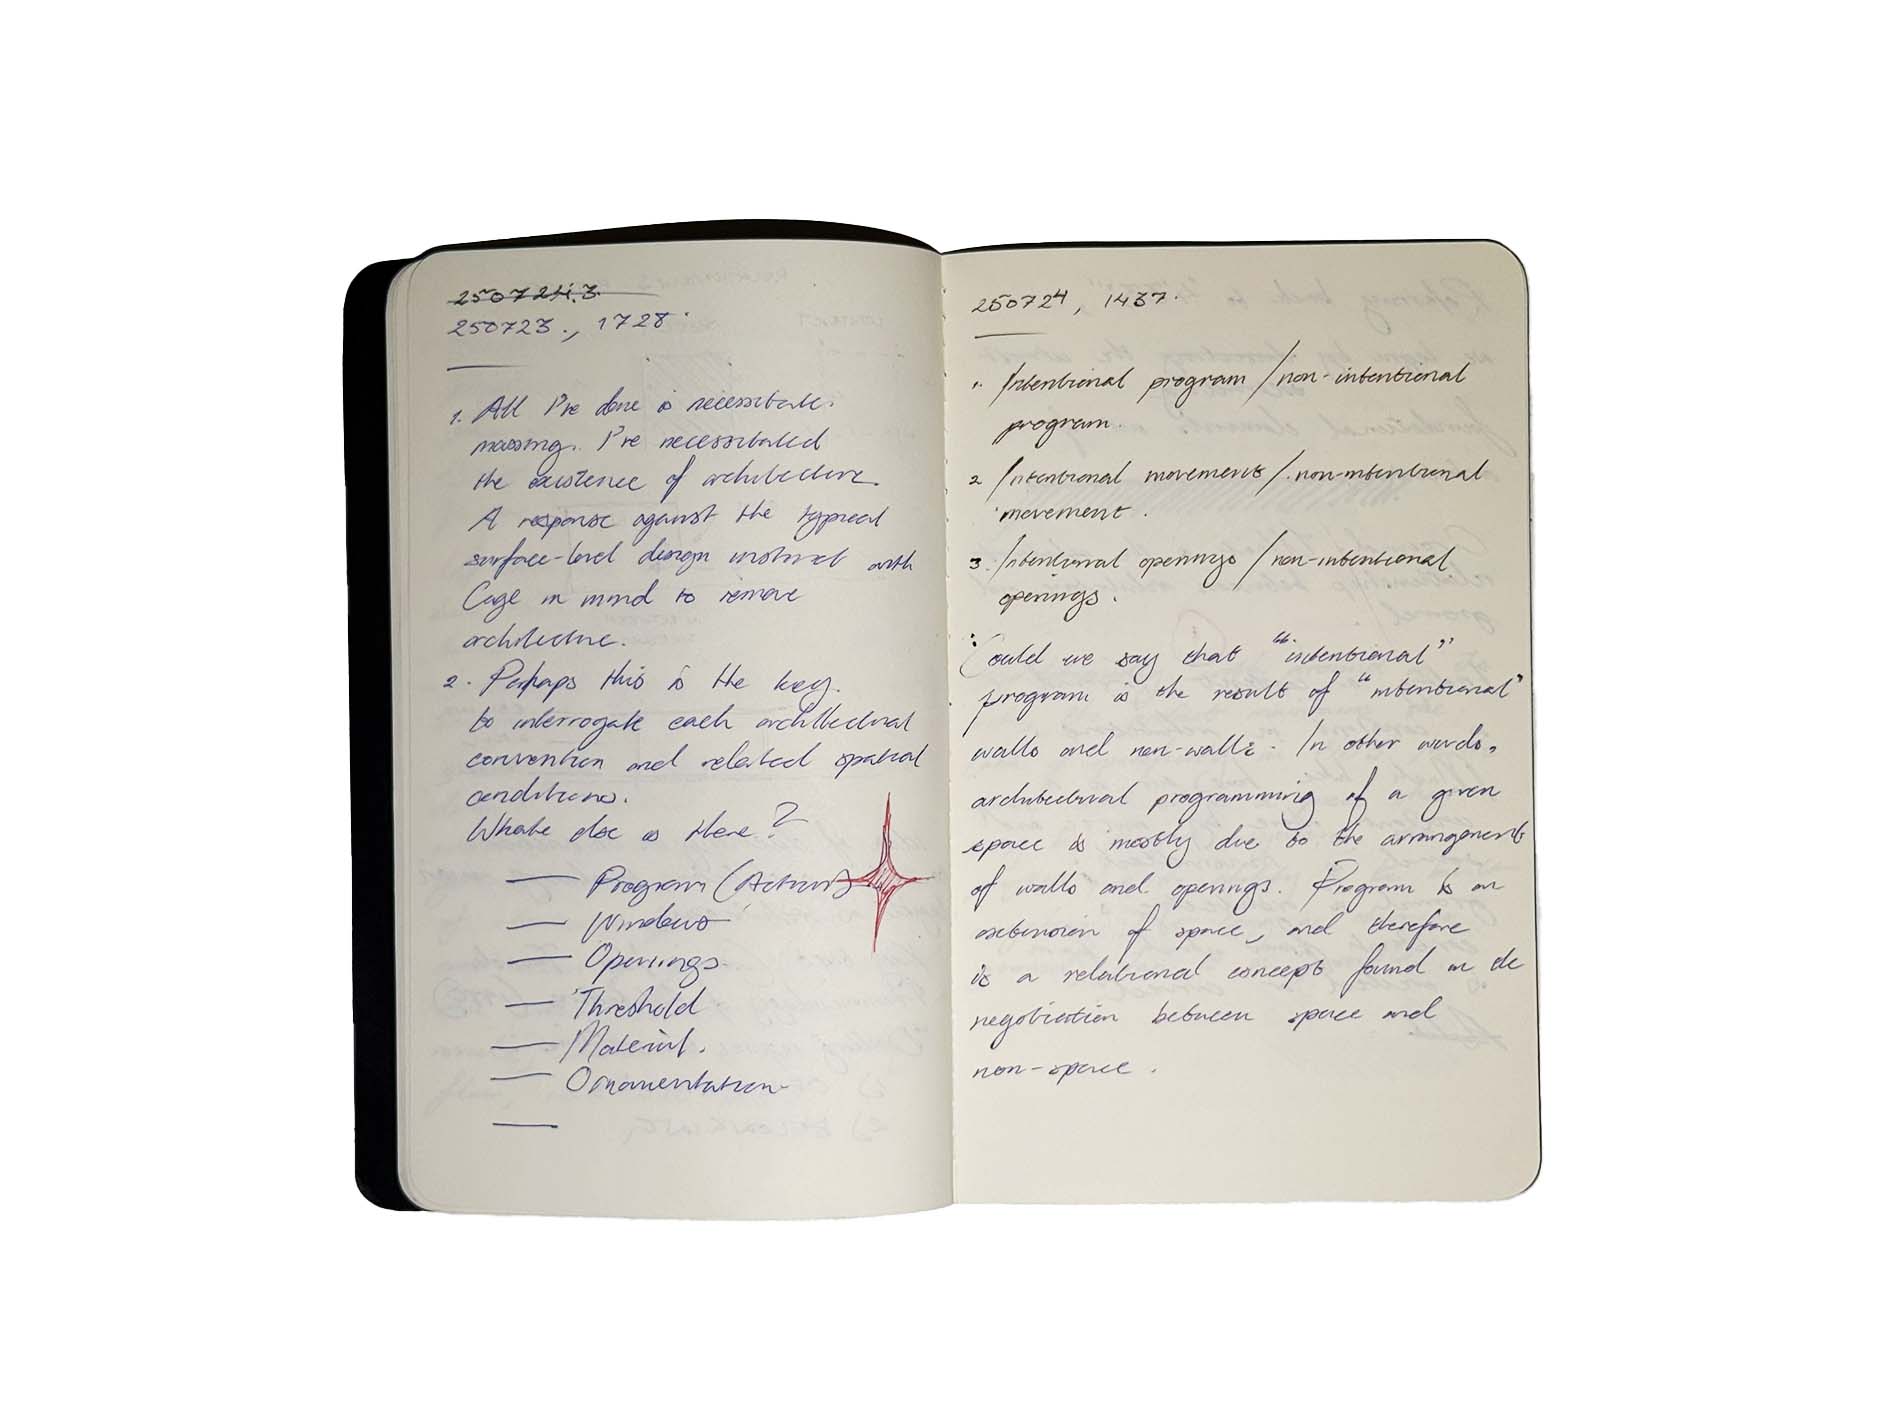 250724.3.
250723., 1728.
1. All I've done is necessitate
massing. I've necessitated
the existence of architecture.
A response against the typical
surface-level design instinct with
Cage in mind to remove
architecture.
2. Perhaps this is the key.
to interrogate each architectural
convention and related spatial
conditions.
What else is there?
— Program (Action)
— Windows
— Openings
— Threshold
— Material.
— Ornamentation
—
250724, 1437.
1. Intentional program / non-intentional
program.
2 Intentional movement / non-intentional
movement.
3. Intentional openings / non-intentional
openings.
Could we say that "intentional"
program is the result of "intentional"
walls and non-walls. In other words,
architectural programming of a given
space is mostly due to the arrangement
of walls and openings. Program is an
extension of space, and therefore
is a relational concept found in de
negotiation between space and
non-space.